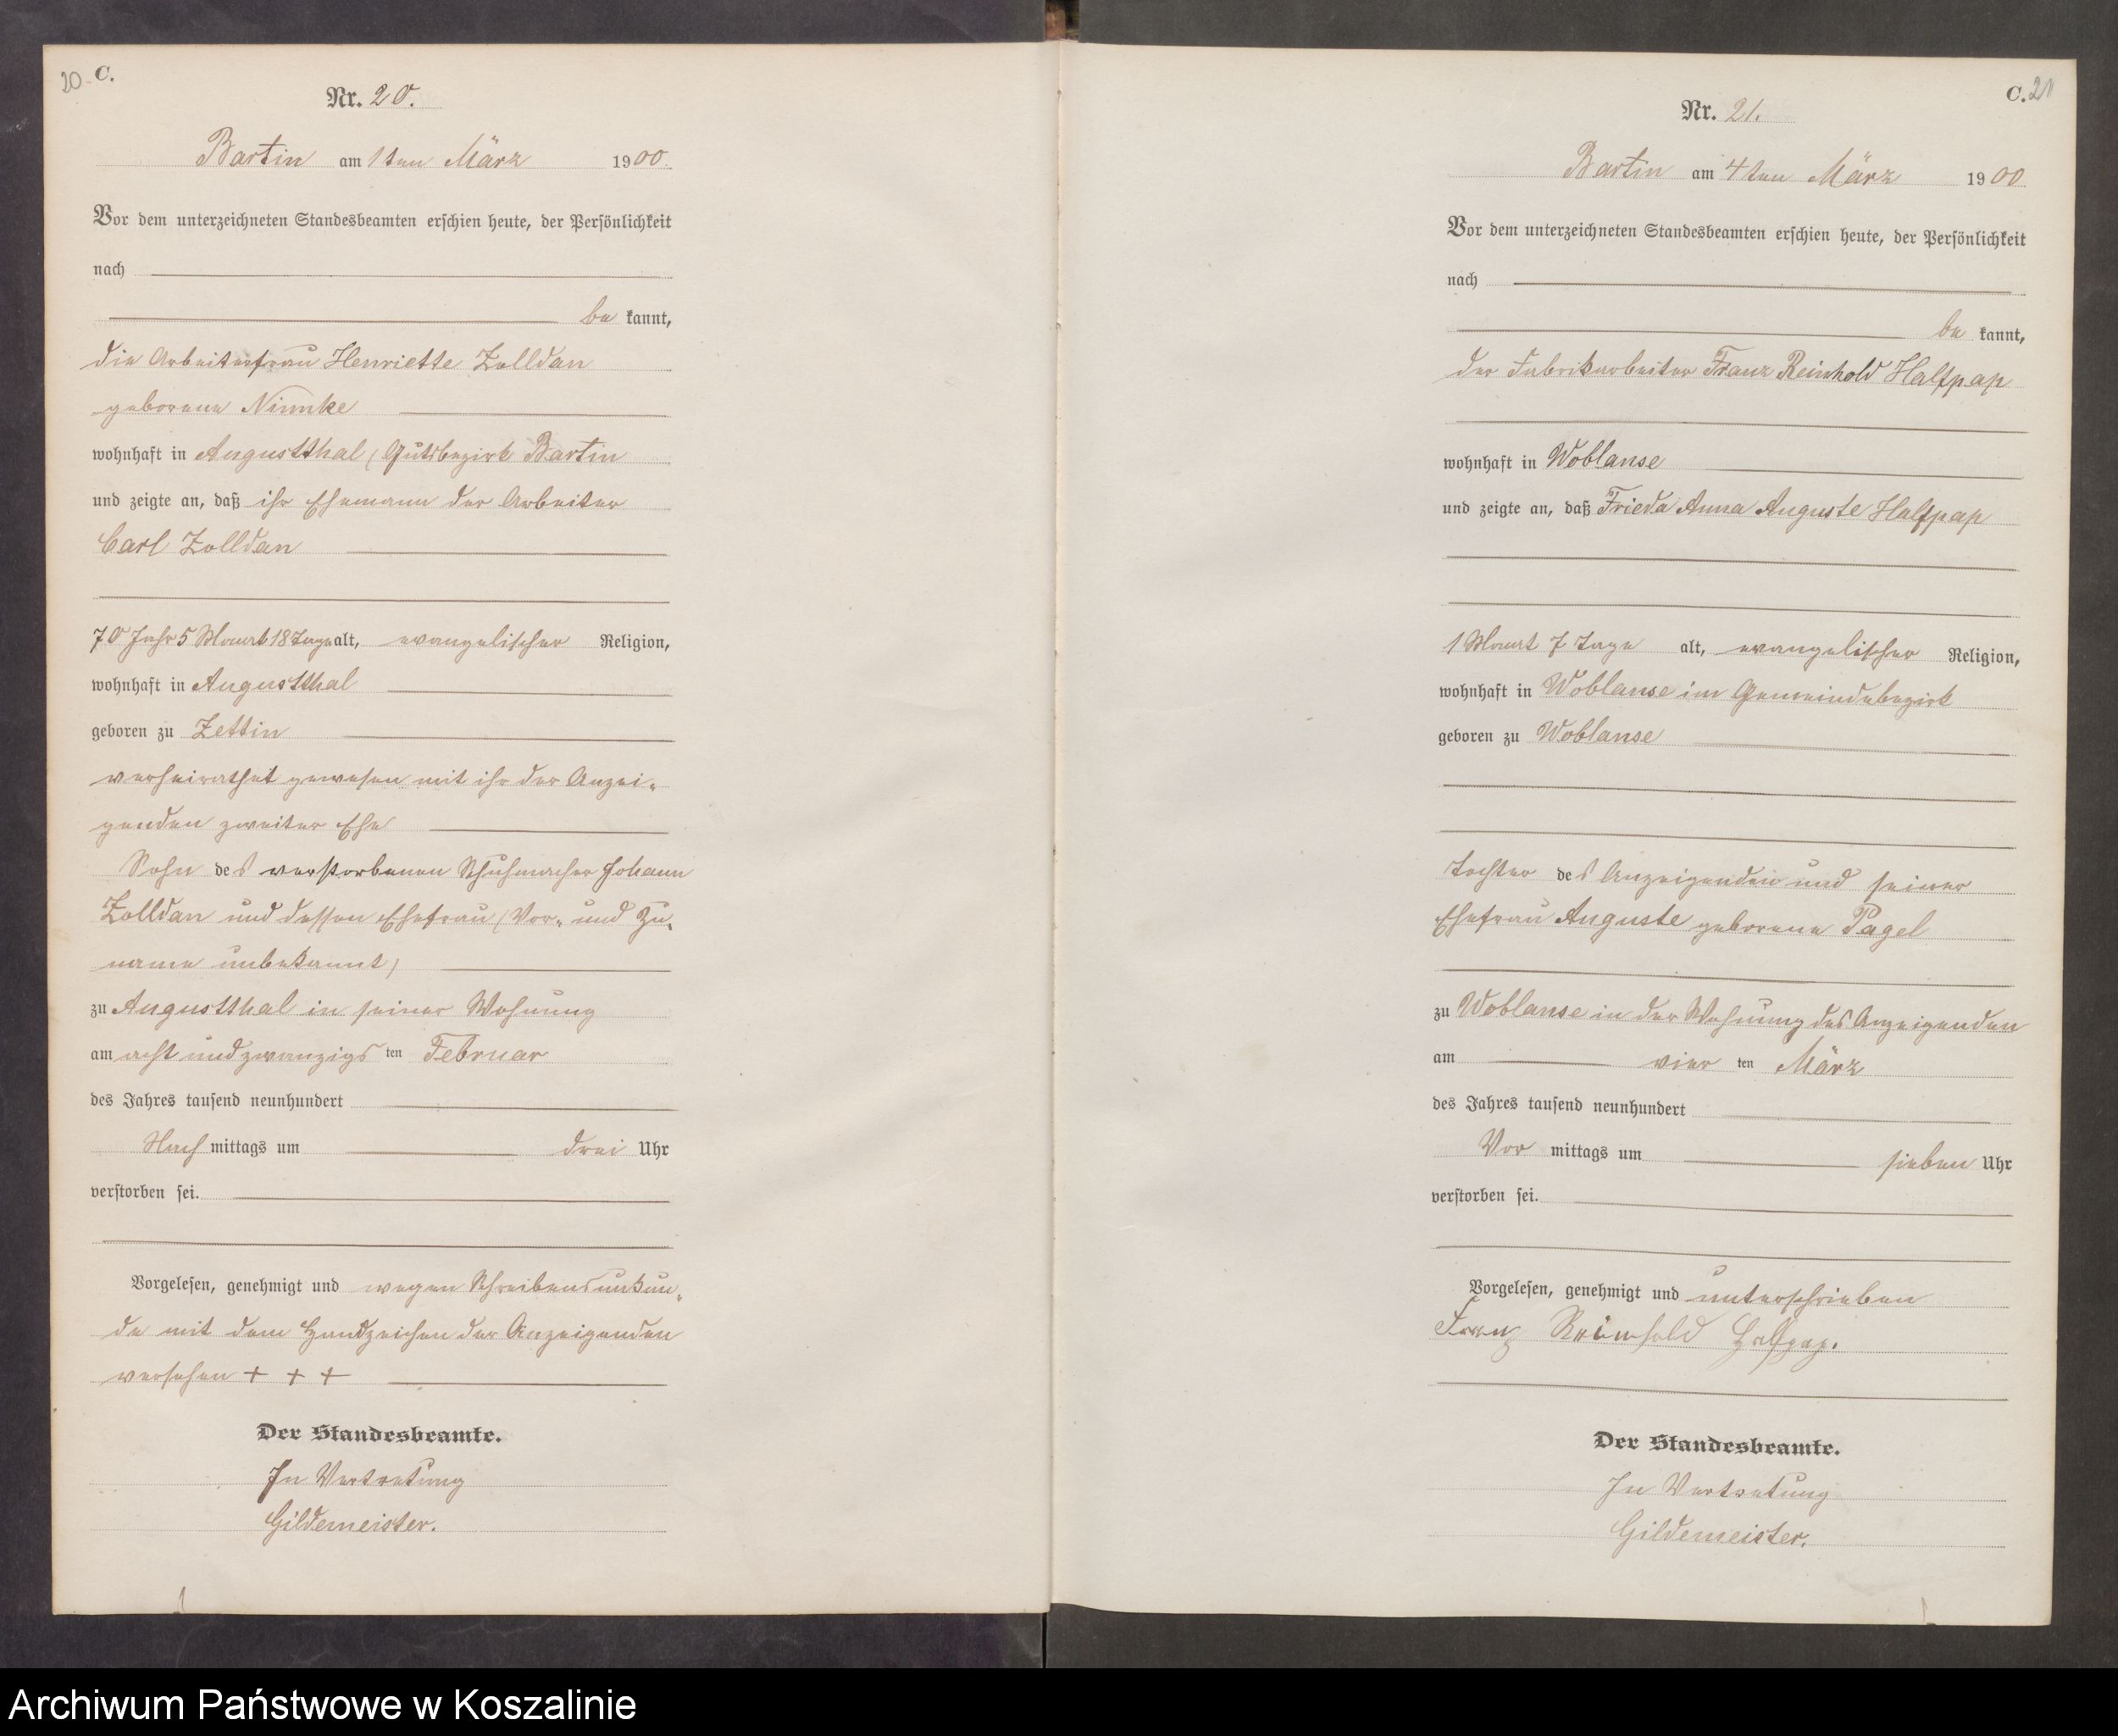 20 C.
Nr. 20.
Bartin am 1ten März 1900.
Vor dem unterzeichneten Standesbeamten erschien heute, der Persönlichkeit
nach
be kannt,
die Arbeiterfrau Henriette Zolldan
geborene Nimke
wohnhaft in Augustthal (Gutsbezirk Bartin
und zeigte an, daß ihr Ehemann der Arbeiter
Carl Zolldan
70 Jahr 5 Monat 18 Tage alt, evangelischer Religion,
wohnhaft in Augustthal
geboren zu Zettin
verheirathet gewesen mit ihr der Anzei-
genden zweiter Ehe
Sohn des verstorbenen Schuhmacher Johann
Zolldan und dessen Ehefrau (Vor- und Zu-
name unbekannt)
zu Augustthal in seiner Wohnung
am acht und zwanzigs ten Februar
des Jahres tausend neunhundert
Nach mittags um drei Uhr
verstorben sei.
Vorgelesen, genehmigt und wegen Schreibensunkun-
de mit dem Handzeichen der Anzeigenden
versehen + + +
Der Standesbeamte.
In Vertretung
Gildemeister.
C. 21
Nr. 21.
Bartin am 4ten März 1900
Vor dem unterzeichneten Standesbeamten erschien heute, der Persönlichkeit
nach
be kannt,
der Fabrikarbeiter Franz Reinhold Halfpap
wohnhaft in Woblanse
und zeigte an, daß Frieda Anna Auguste Halfpap
1 Monat 7 Tage alt, evangelischer Religion,
wohnhaft in Woblanse im Gemeindebezirk
geboren zu Woblanse
Tochter des Anzeigenden und seiner
Ehefrau Auguste geborene Pagel
zu Woblanse in der Wohnung des Anzeigenden
am vier ten März
des Jahres tausend neunhundert
Vor mittags um sieben Uhr
verstorben sei.
Vorgelesen, genehmigt und unterschrieben
Franz Reinhold Halfpap.
Der Standesbeamte.
In Vertretung
Gildemeister.
Archiwum Państwowe w Koszalinie